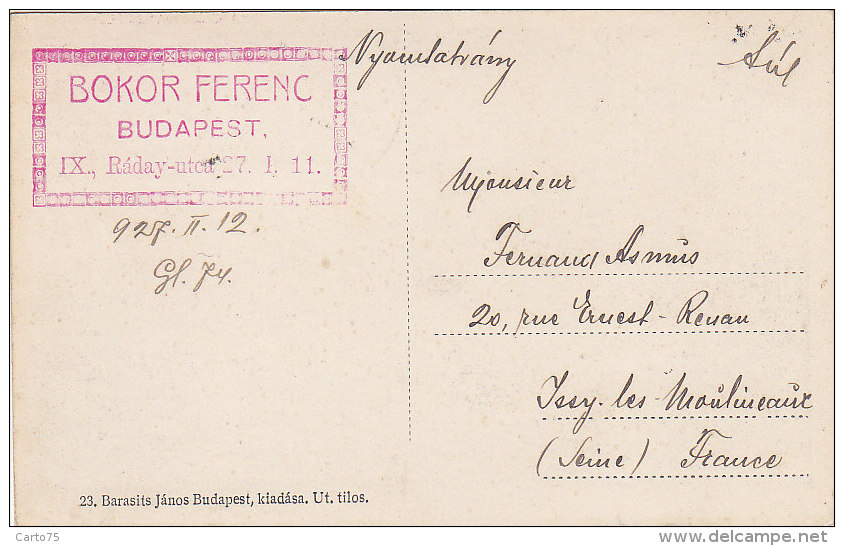 BOKOR FERENC
BUDAPEST,
IX., Ráday-utca 27. I. 11.
927. II. 12.
Gl. 74.
Nyomtatvány
Monsieur
Fernand Asmus
20, rue Ernest-Renan
Issy-les-Moulineaux
(Seine) France
23. Barasits János Budapest, kiadása. Ut. tilos.
Carto75
www.delcampe.net